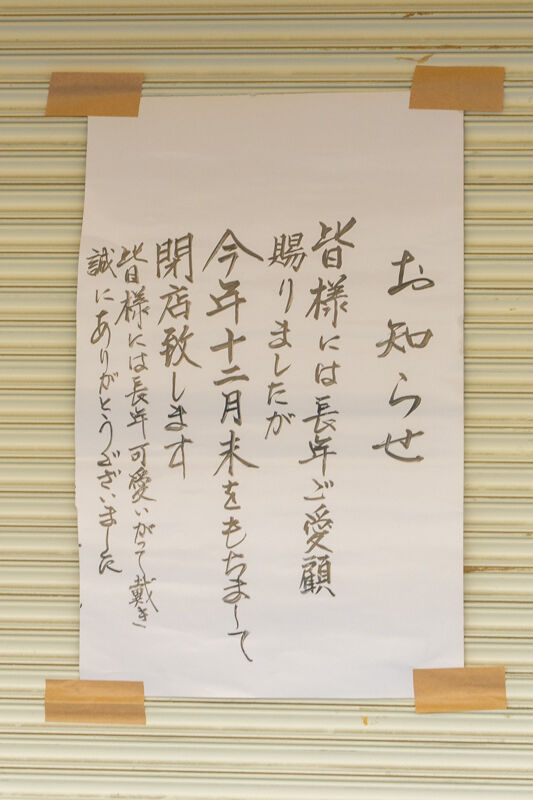 お知らせ
皆様には長年ご愛顧
賜りましたが
今年十二月末をもちまして
閉店致します
皆様には長年可愛いがって戴き
誠にありがとうございました